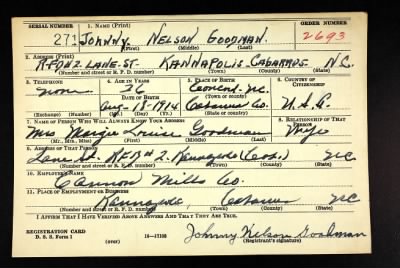 SERIAL NUMBER 1. NAME (Print) ORDER NUMBER (Print)
271 JOHNNY NELSON GOODMAN. 2693
(First) (Middle) (Last)
2. ADDRESS (Print)
R.F.D #2. LANE. ST. KANNAPOLIS. CABARRUS. N.C.
(Number and street or R. F. D. number) (Town) (County) (State)
3. TELEPHONE 4. AGE IN YEARS 5. PLACE OF BIRTH 6. COUNTRY OF CITIZENSHIP
none 26 Concord. N.C.
DATE OF BIRTH (Town or county)
Aug-18-1914 Cabarrus Co. U.S.A.
(Exchange) (Number) (Mo.) (Day) (Yr.) (State or country)
7. NAME OF PERSON WHO WILL ALWAYS KNOW YOUR ADDRESS 8. RELATIONSHIP OF THAT PERSON
Mrs Margie Louise Goodman Wife
(Mr., Mrs., Miss) (First) (Middle) (Last)
9. ADDRESS OF THAT PERSON
Lane St. R.F.D # 2. Kannapolis (Cab.) N.C.
(Number and street or R. F. D. number) (Town) (County) (State)
10. EMPLOYER'S NAME
Cannon Mills Co.
11. PLACE OF EMPLOYMENT OR BUSINESS
Kannapolis, Cabarrus N.C.
(Number and street or R. F. D. number) (Town) (County) (State)
I AFFIRM THAT I HAVE VERIFIED ABOVE ANSWERS AND THAT THEY ARE TRUE.
REGISTRATION CARD
D. S. S. Form 1 16—17105 Johnny Nelson Goodman
(over) (Registrant's signature)